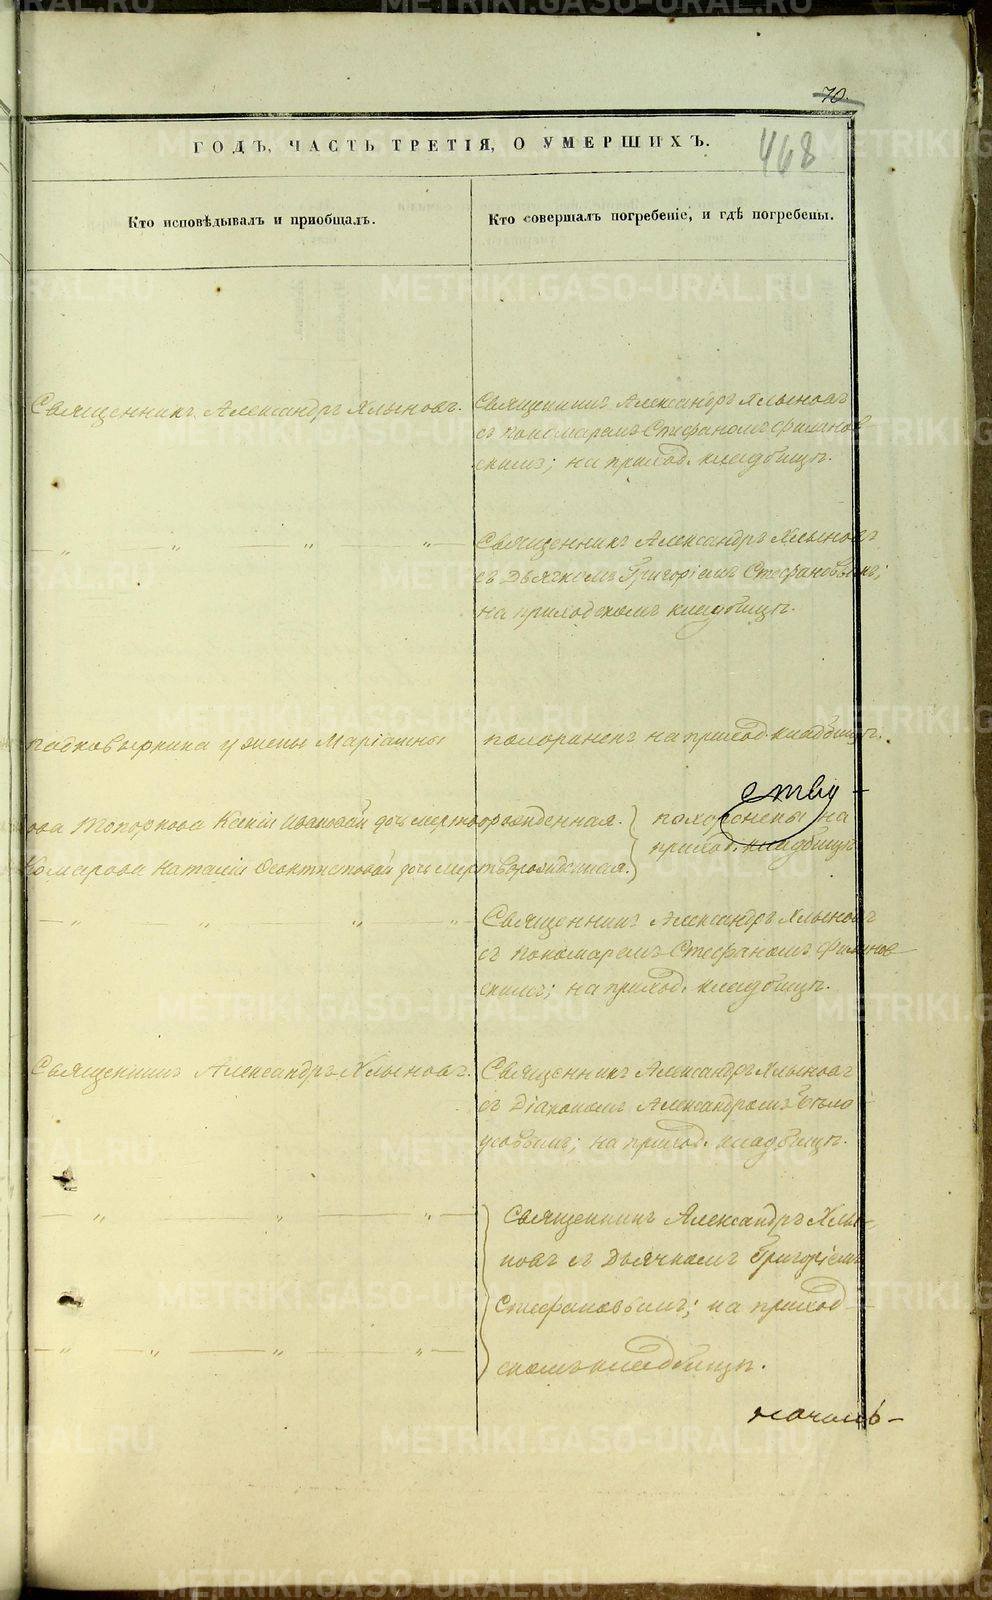 70.
468
ГОДЪ, ЧАСТЬ ТРЕТІЯ, О УМЕРШИХЪ.
Кто исповѣдывалъ и приобщалъ.
Кто совершалъ погребеніе, и гдѣ погребены.
Священникъ Александръ Хлыновъ.
Священникъ Александръ Хлыновъ
съ пономаремъ Стефаномъ Филинов
скимъ; на приход. кладбищѣ.
— „ — „ — „ — „ —
Священникъ Александръ Хлыновъ
съ Дьячкомъ Григоріемъ Стефановымъ;
на приходскомъ кладбищѣ.
у жены Маріамны
похороненъ на приход. кладбищѣ.
ству-
Топоркова Ксеніи Ивановой дочь мертворожденная.
похоронены на
приход. кладбищѣ
Комарова Наталіи Феоктистовой дочь мертворожденная.
— „ — „ — „ — „ —
Священникъ Александръ Хлыновъ
съ пономаремъ Стефаномъ Филинов-
скимъ; на приход. кладбищѣ.
Священникъ Александръ Хлыновъ.
Священникъ Александръ Хлыновъ
съ Діакономъ Александромъ Бѣло-
усовымъ; на приход. кладбищѣ.
— „ — „ — „ —
Священникъ Александръ Хлы-
новъ съ Дьячкомъ Григоріемъ
Стефановымъ; на приход-
скомъ кладбищѣ.
— „ — „ — „ — „ —
METRIKI.GASO-URAL.RU